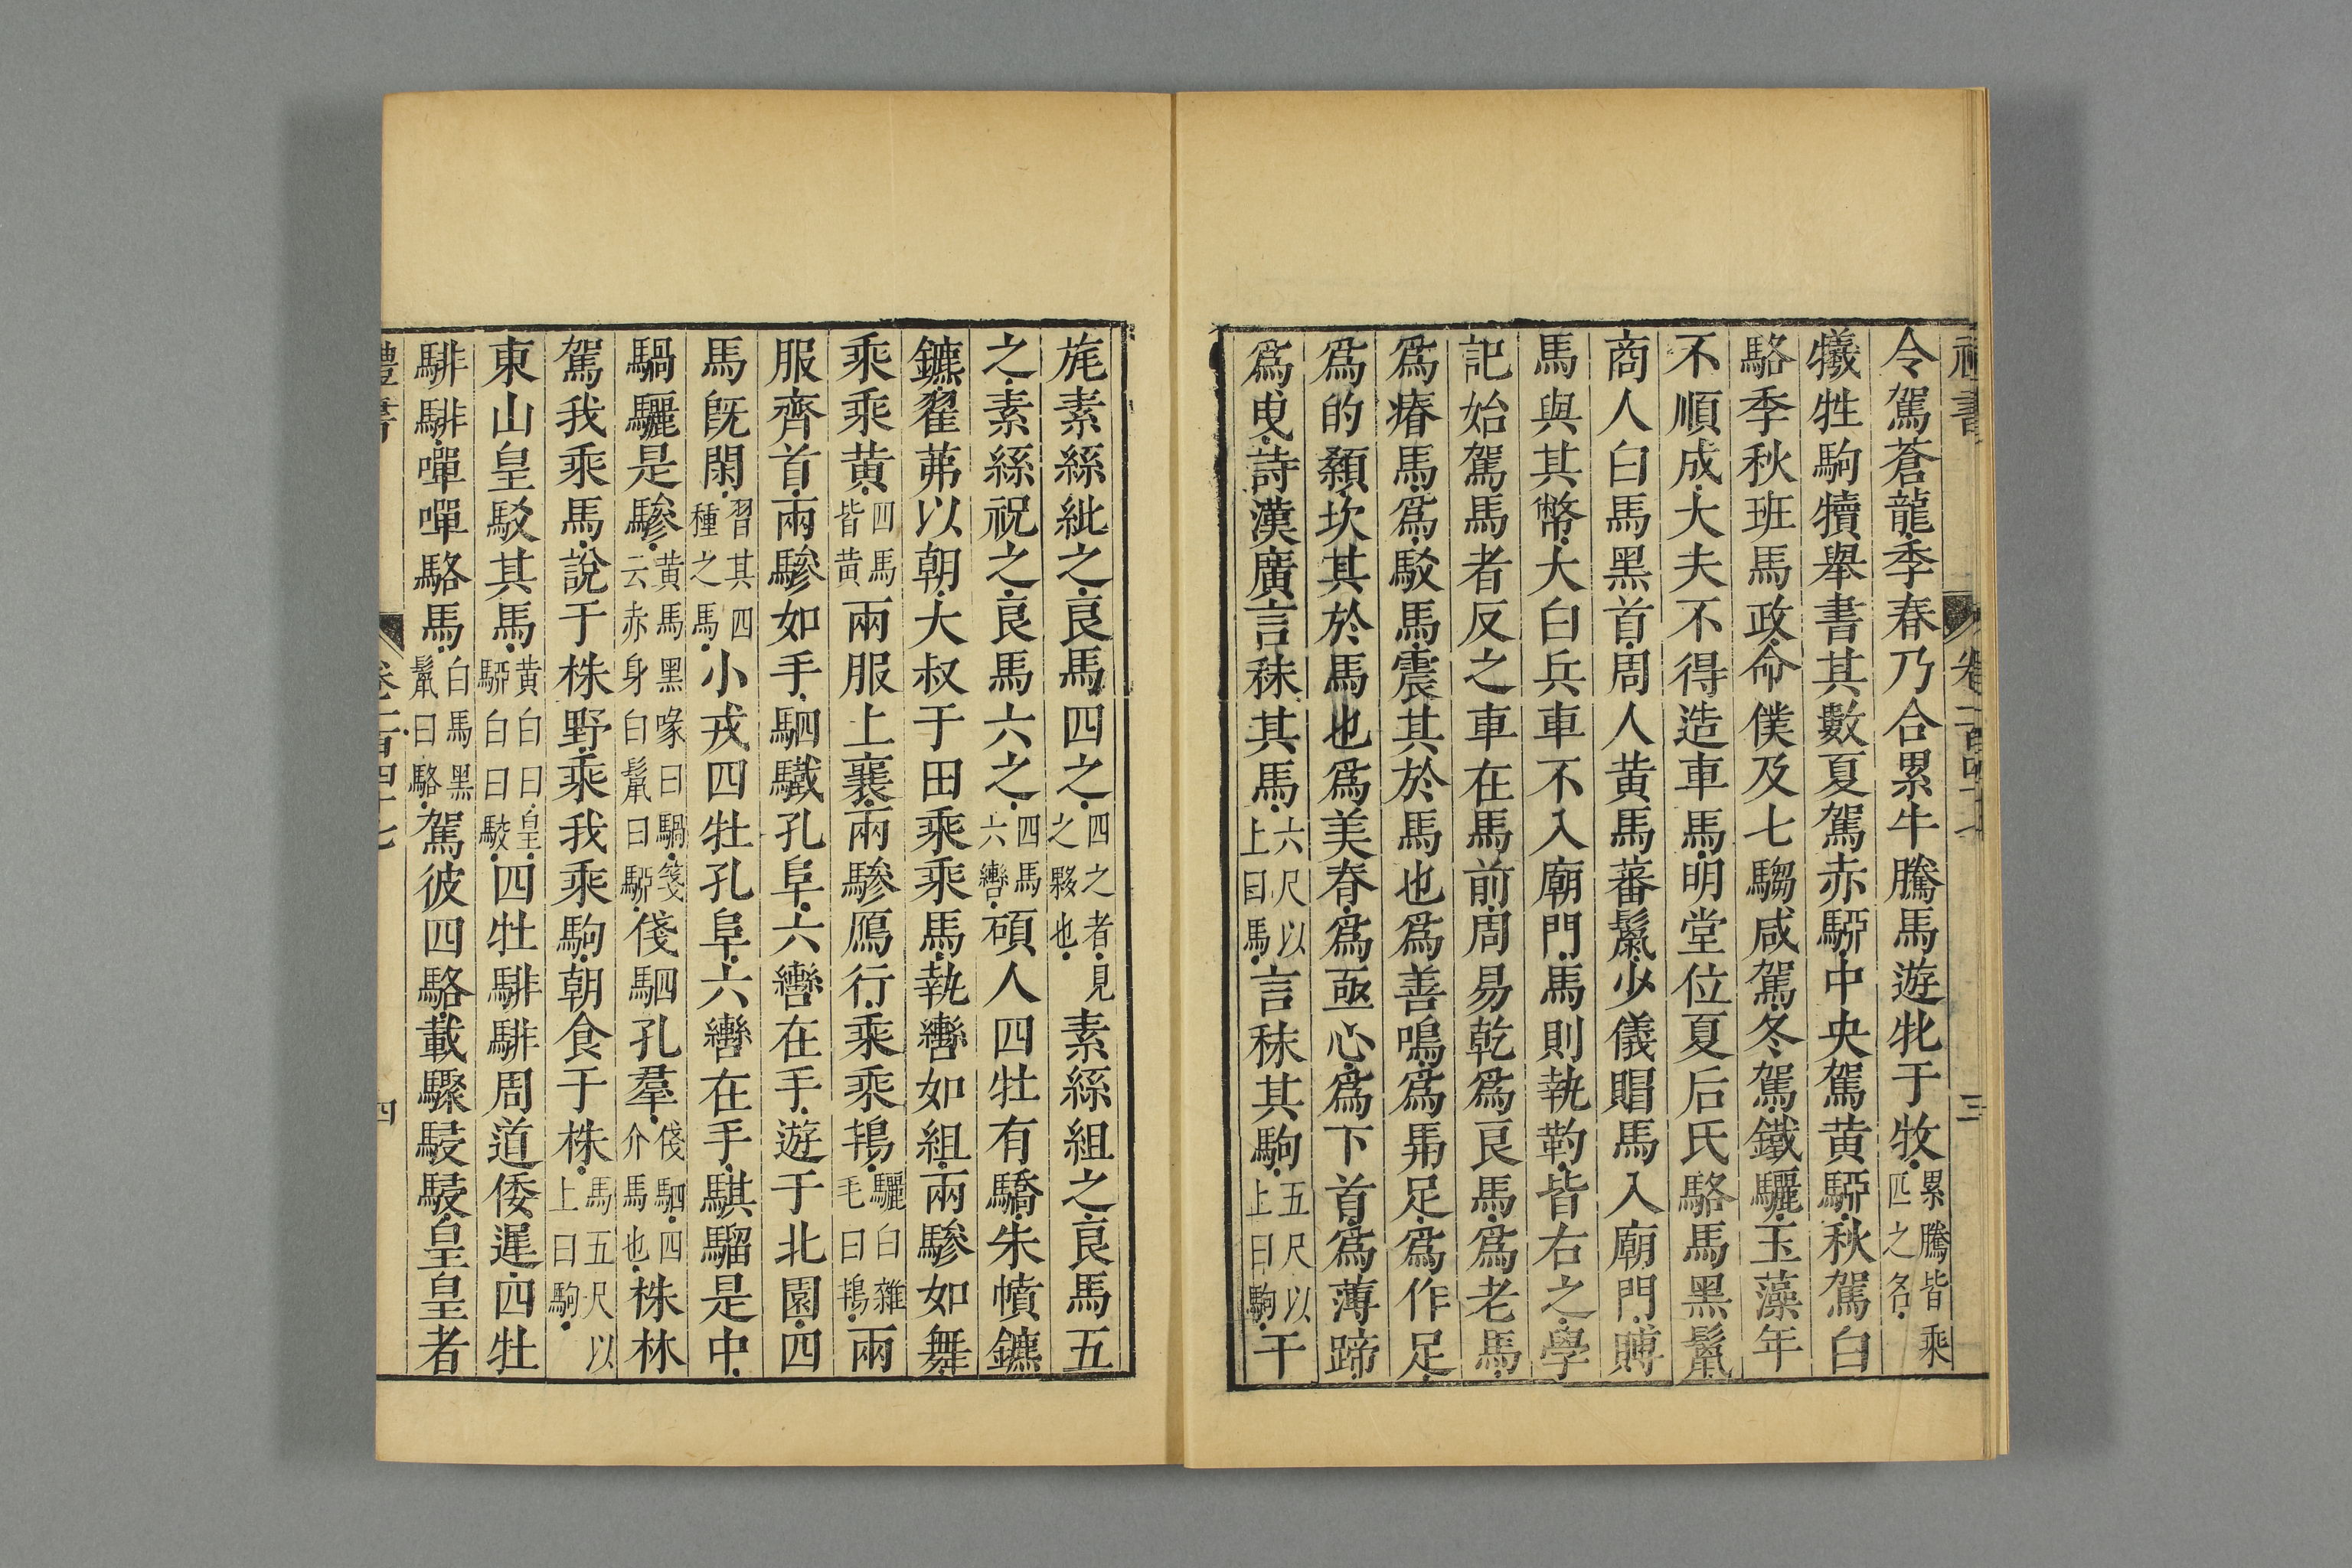 令駕蒼龍季春乃合累牛騰馬遊牝于牧累騰皆乘匹之名
犧牲駒犢舉書其數夏駕赤騢中央駕黄騢秋駕白
駱季秋班馬政命僕及七騶咸駕冬駕鐵驪玉藻年
不順成大夫不得造車馬明堂位夏后氏駱馬黑鬛
商人白馬黑首周人黄馬蕃鬛少儀賵馬入廟門賻
馬與其幣大白兵車不入廟門馬則執靮皆右之學
記始駕馬者反之車在馬前周易乾爲良馬爲老馬
爲瘠馬爲駁馬震其於馬也爲善鳴爲馵足爲作足
爲的顙坎其於馬也爲美脊爲亟心爲下首爲薄蹄
爲曳詩漢廣言秣其馬六尺以上曰馬言秣其駒五尺以上曰駒干
旄素絲紕之良馬四之四之者見之數也素絲組之良馬五
之素絲祝之良馬六之四馬六轡碩人四牡有驕朱幩鑣
鑣翟茀以朝大叔于田乘乘馬執轡如組兩驂如舞
乘乘黄四馬皆黄兩服上襄兩驂鴈行乘乘鴇驪白雜毛曰鴇兩
服齊首兩驂如手駟驖孔阜六轡在手遊于北園四
馬旣閑習其四種之馬小戎四牡孔阜六轡在手騏騮是中
騧驪是驂黄馬黑喙曰騧箋云赤身白鬛曰騢俴駟孔羣俴駟四介馬也株林
駕我乘馬說于株野乘我乘駒朝食于株馬五尺以上曰駒
東山皇駁其馬黄白曰皇騢白曰駁四牡騑騑周道倭遲四牡
騑騑嘽嘽駱馬白馬黑鬛曰駱駕彼四駱載驟駸駸皇皇者